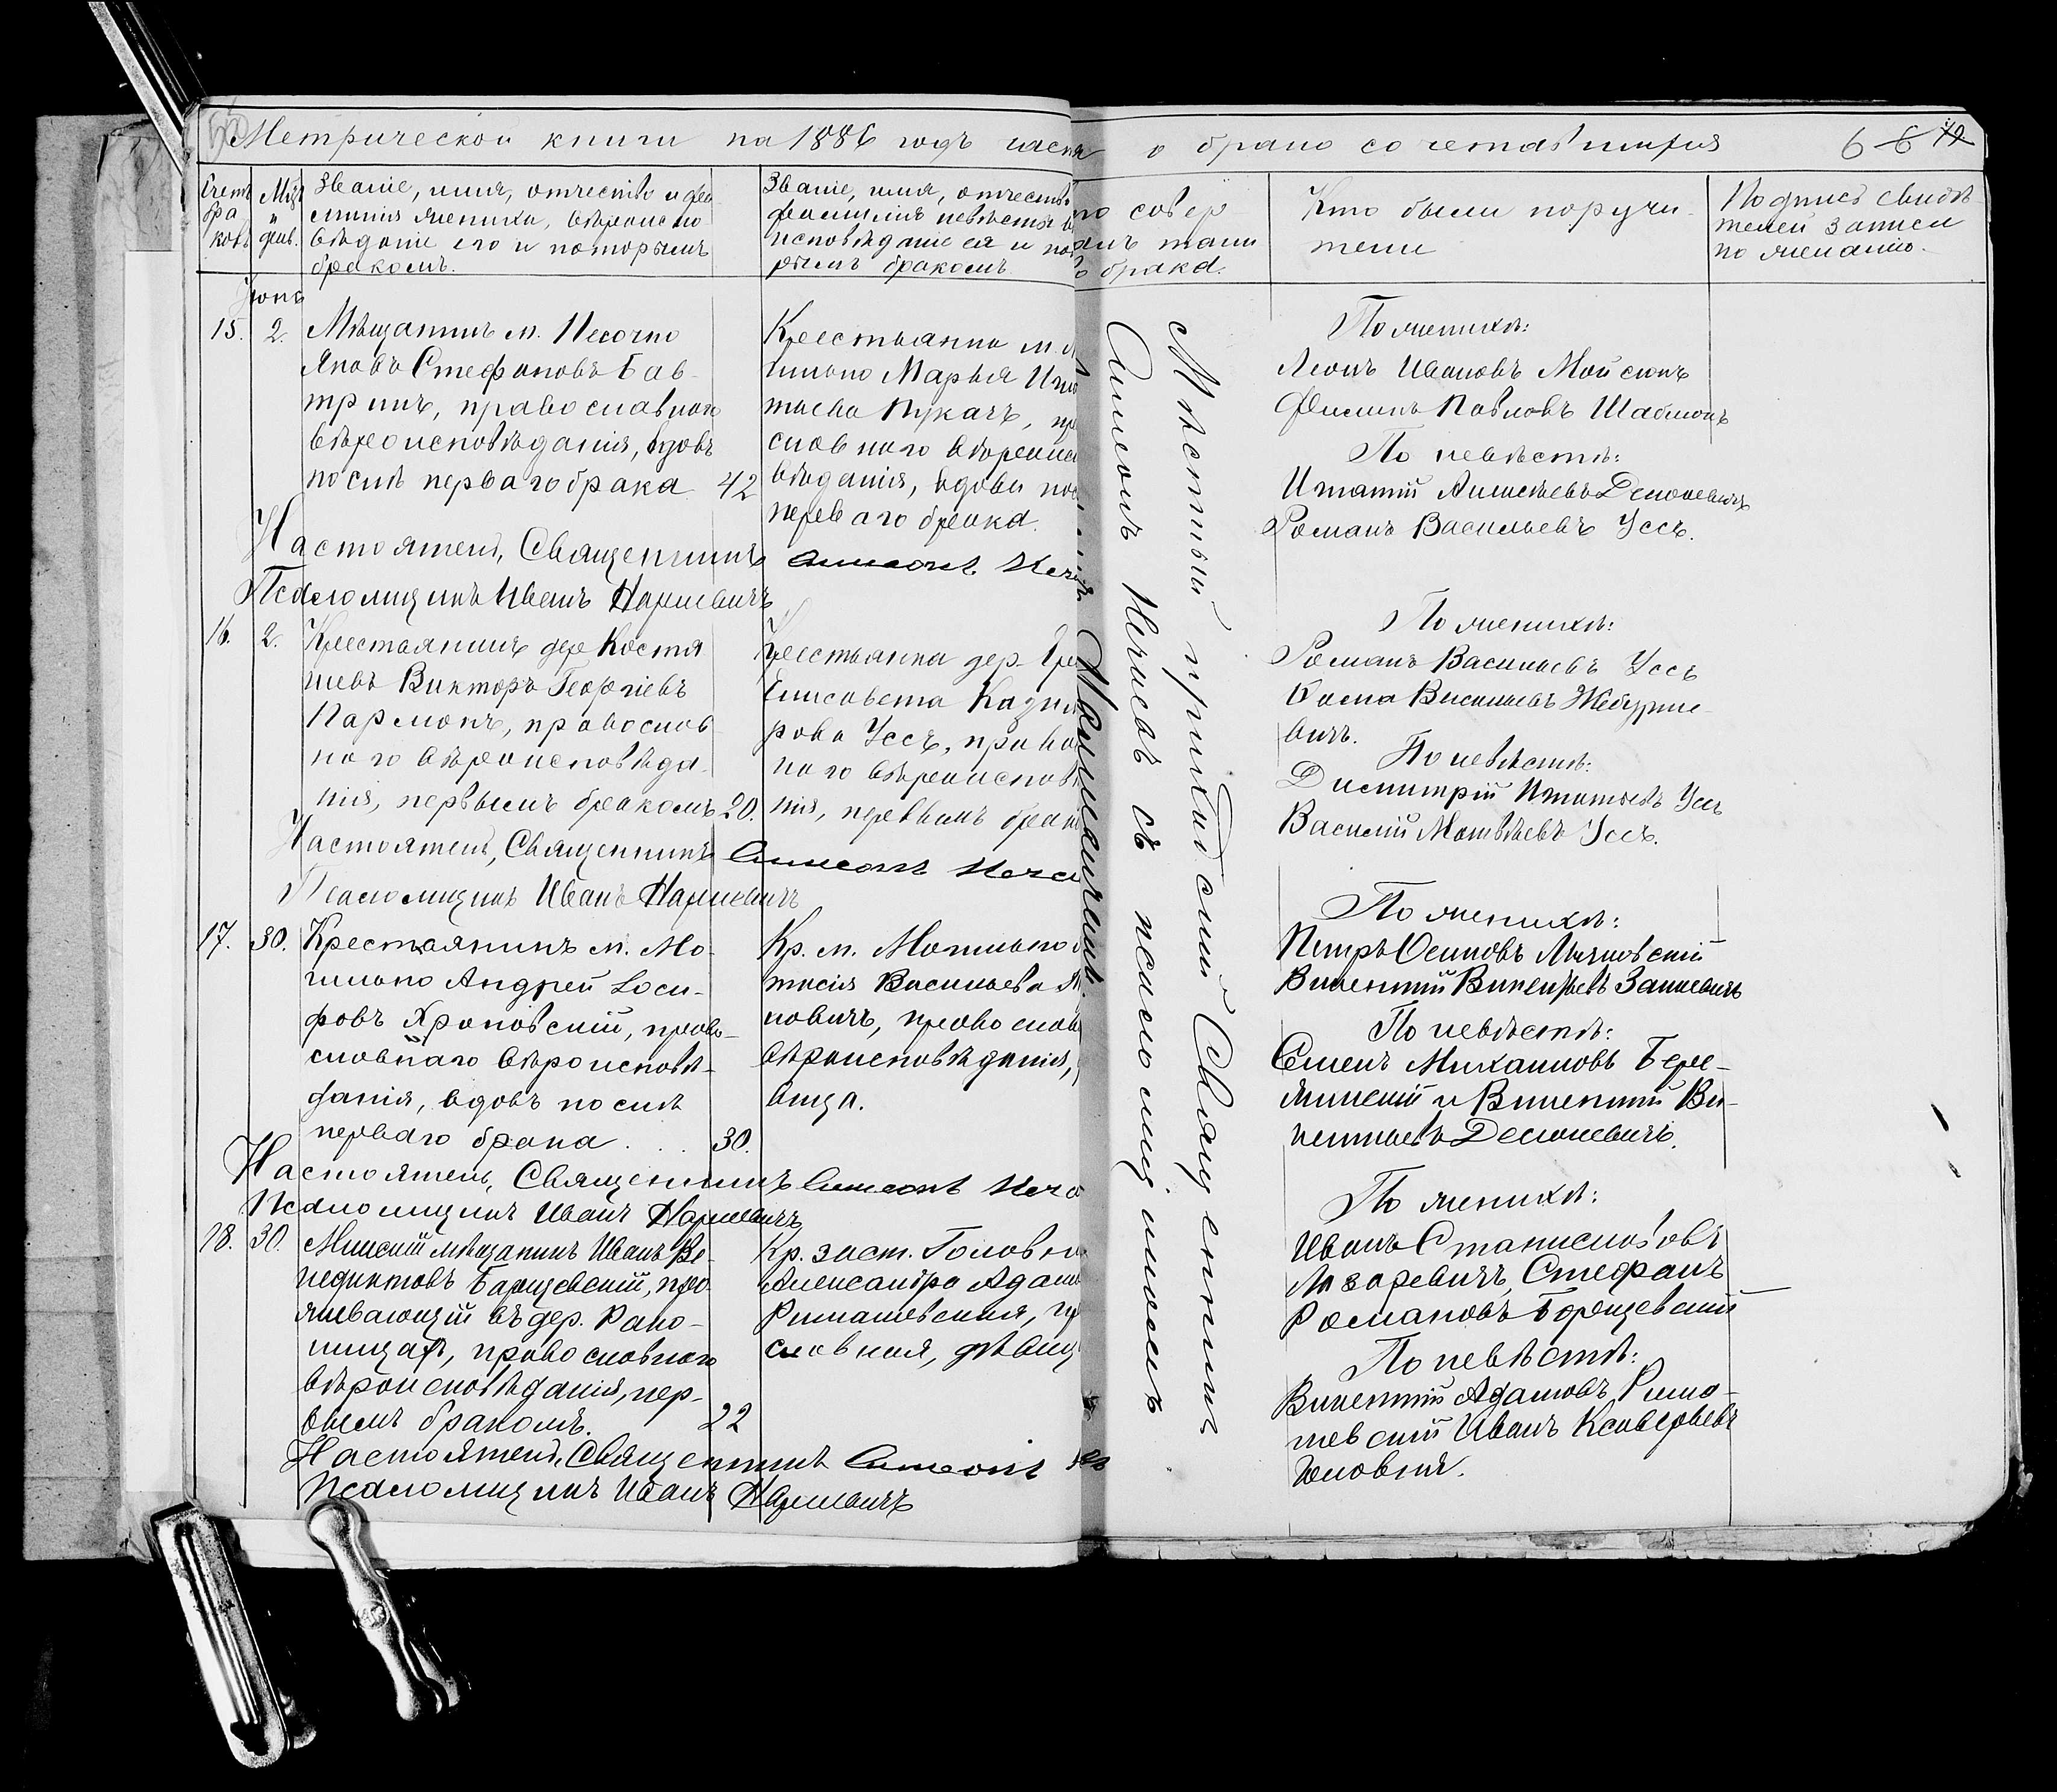 Метрической книги на 1886 годъ часть
о бракосочетавшихся
66 72
Счетъ
бра
ковъ
Мѣс.
и
день.
Званіе, имя, отчество и фа
милія жениха, вѣроиспо
вѣданіе его и которымъ
бракомъ.
Званіе, имя, отчество
фамилія невѣсты
исповѣданіе ея и кото
рымъ бракомъ.
то совер
алъ таин
о брака.
Кто были поручи-
тели
Подпись свидѣ
телей записи
по желанію.
Іюнь
15. 2. Мѣщанинъ м. Песочно
Яковъ Стефановъ Бав-
тринъ, православнаго
вѣроисповѣданія, вдовъ
послѣ перваго брака 42
Крестьянка м.
Марья Игна
тьева Пукачъ,
славнаго вѣроиспо
вѣданія, вдова пос
перваго брака.
По женихѣ:
Леонъ Ивановъ Мойсюкъ
Филипъ Павловъ Шаблюкъ
По невѣстѣ:
Игнатій Алексѣевъ Демоневичъ
Романъ Васильевъ Уссъ.
Настоятель, Священникъ Симеонъ Неч
Псаломщикъ Иванъ Наркевичъ
16. 2. Крестьянинъ дер. Костя
шевъ Викторъ Георгіевъ
Пармонъ, православ
наго вѣроисповѣда-
нія, первымъ бракомъ 20.
Крестьянка дер.
Елисавета Кази
рова Уссъ, право
наго вѣроисповѣ
нія, первымъ брако
По женихѣ:
Романъ Васильевъ Уссъ
Фома Васильевъ Жебурке-
вичъ.
По невѣстѣ:
Димитрій Игнатьевъ Уссъ
Василій Матвѣевъ Уссъ.
Настоятель, Священникъ Симеонъ Неча
Псаломщикъ Иванъ Наркевичъ
17. 30. Крестьянинъ м. Мо-
гильно Андрей Іоси-
фовъ Храповскій, право-
славнаго вѣроисповѣ-
данія, вдовъ послѣ
перваго брака . . . 30.
Кр. м. Могильно
тасія Васильева
новичъ, православ
вѣроисповѣданія,
вица.
По женихѣ:
Петръ Осиповъ
Викентій Викентьевъ
По невѣстѣ:
Семенъ Михаиловъ Бере-
жинскій и Викентій Ви-
кентьевъ Демоневичъ.
Настоятель, Священникъ Симеонъ Неча
Псаломщикъ Иванъ Наркевичъ
18. 30. Минскій мѣщанинъ Иванъ Ве-
недиктовъ Барщевскій, про-
живающій въ дер. Рако-
шицахъ, православнаго
вѣроисповѣданія, пер-
вымъ бракомъ. 22
Кр. заст.
Александра Адам
Римашевская, пр
славная, дѣвиц
По женихѣ:
Иванъ Станиславовъ
Лазаревичъ, Стефанъ
Романовъ Борщевскій
По невѣстѣ:
Викентій Адамовъ Рима-
шевскій Иванъ Ксаверьевъ
Головня.
Настоятель, Священникъ Симеонъ
Псаломщикъ Иванъ Наркевичъ
Мѣстный приходскій Священникъ
Симеонъ Нечаевъ съ псаломщикомъ
Наркевичемъ.